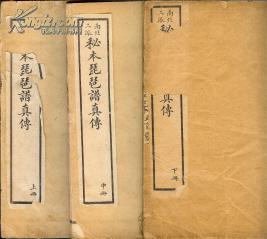 本琵琶譜真傳
上冊
南北
二派
秘本琵琶譜真傳
中冊
南北
二派
秘
真傳
下冊